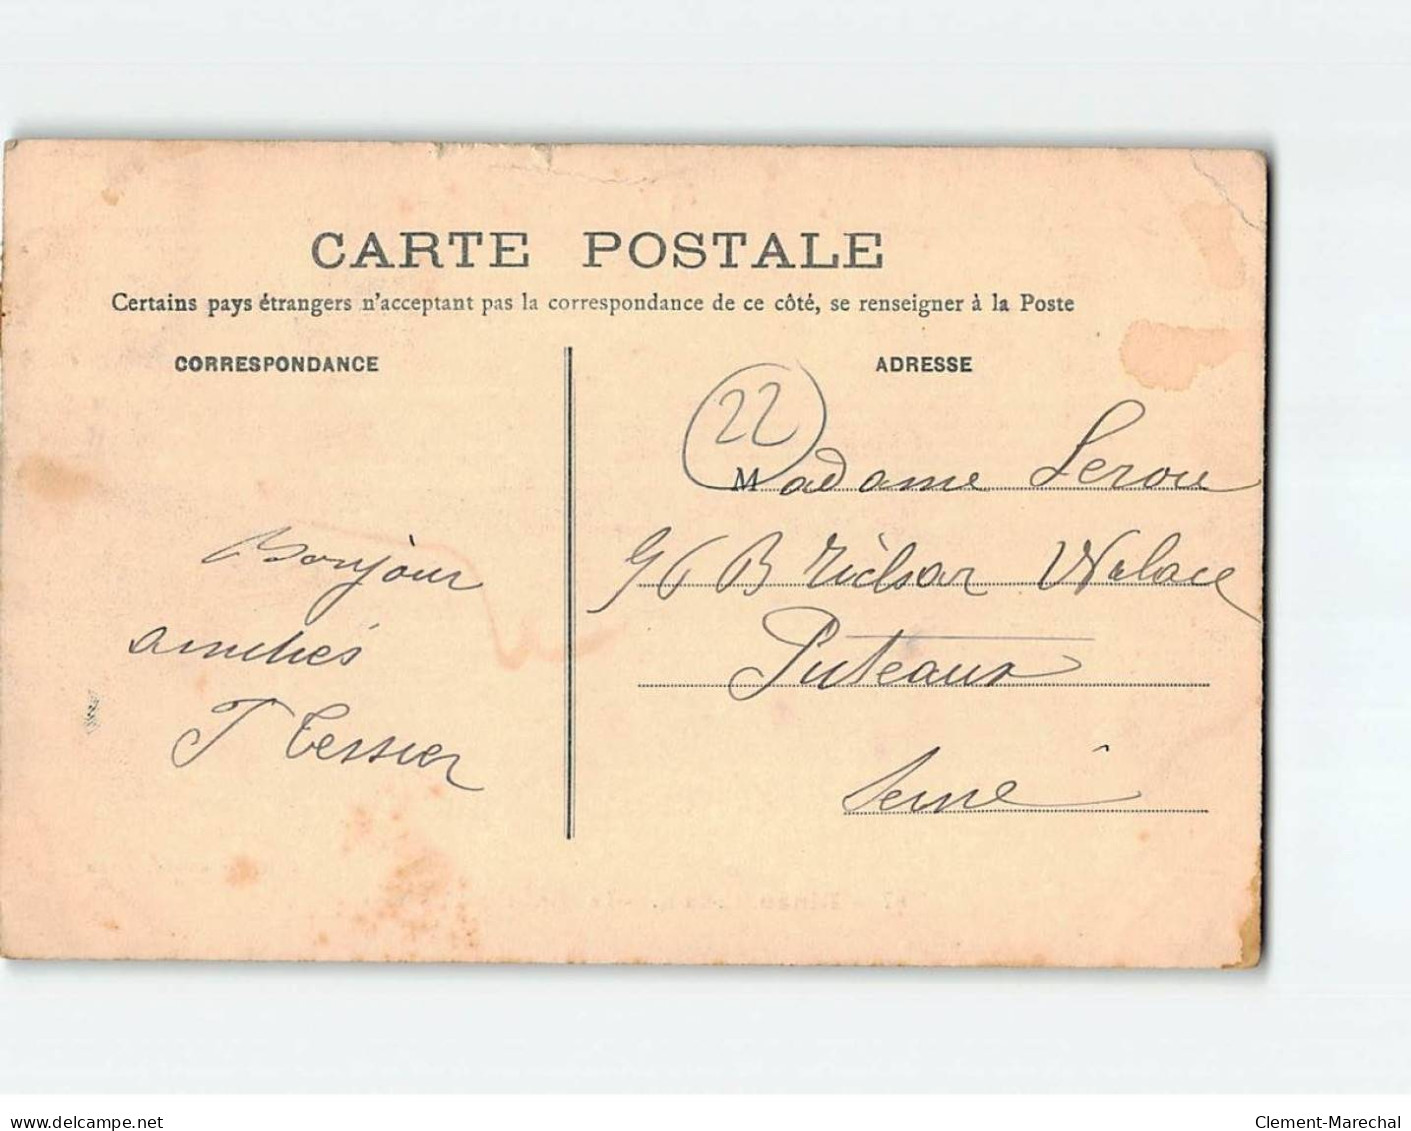 CARTE POSTALE
Certains pays étrangers n'acceptant pas la correspondance de ce côté, se renseigner à la Poste
CORRESPONDANCE
ADRESSE
22
Madame Lerou
96 B Richar Walace
Puteaux
Seine
Bonjour
amitiés
T Tessier
delcampe.net
Clement-Marechal